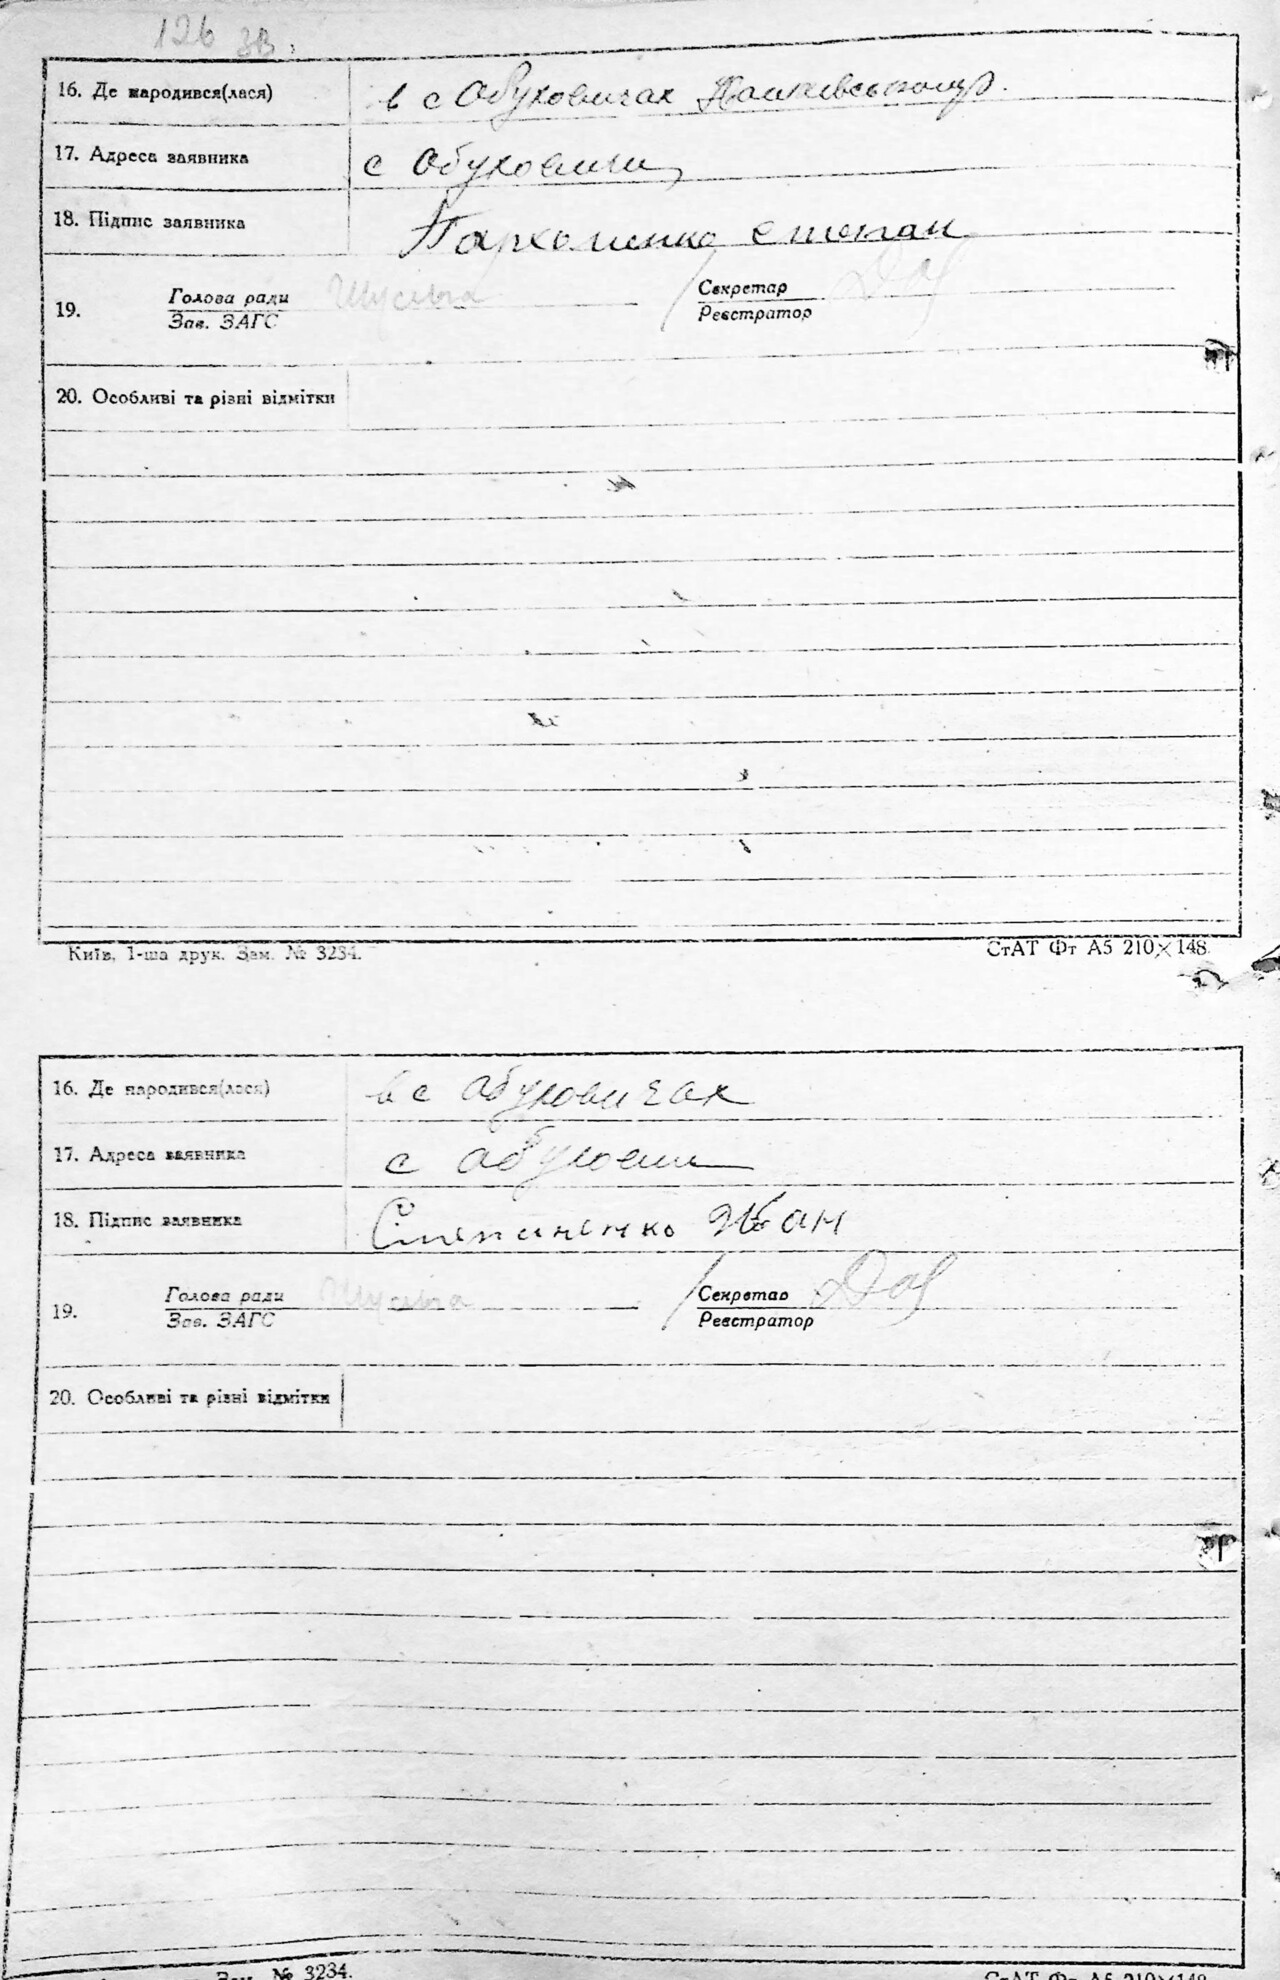 126 зв.
16. Де народився(лася) в с Обуховичах
17. Адреса заявника с Обуховичі
18. Підпис заявника Пархоменко Степан
Голова ради Секретар
19. Зав. ЗАГС Реєстратор
20. Особливі та різні відмітки
Київ, 1-ша друк. Зам. № 3234. СтАТ Фт А5 210×148.
16. Де народився(лася) в с Обуховичах
17. Адреса заявника с Обухови
18. Підпис заявника Степаненко Иван
Голова ради Секретар
19. Зав. ЗАГС Реєстратор
20. Особливі та різні відмітки
Зам. № 3234. СтАТ Фт А5 210×148